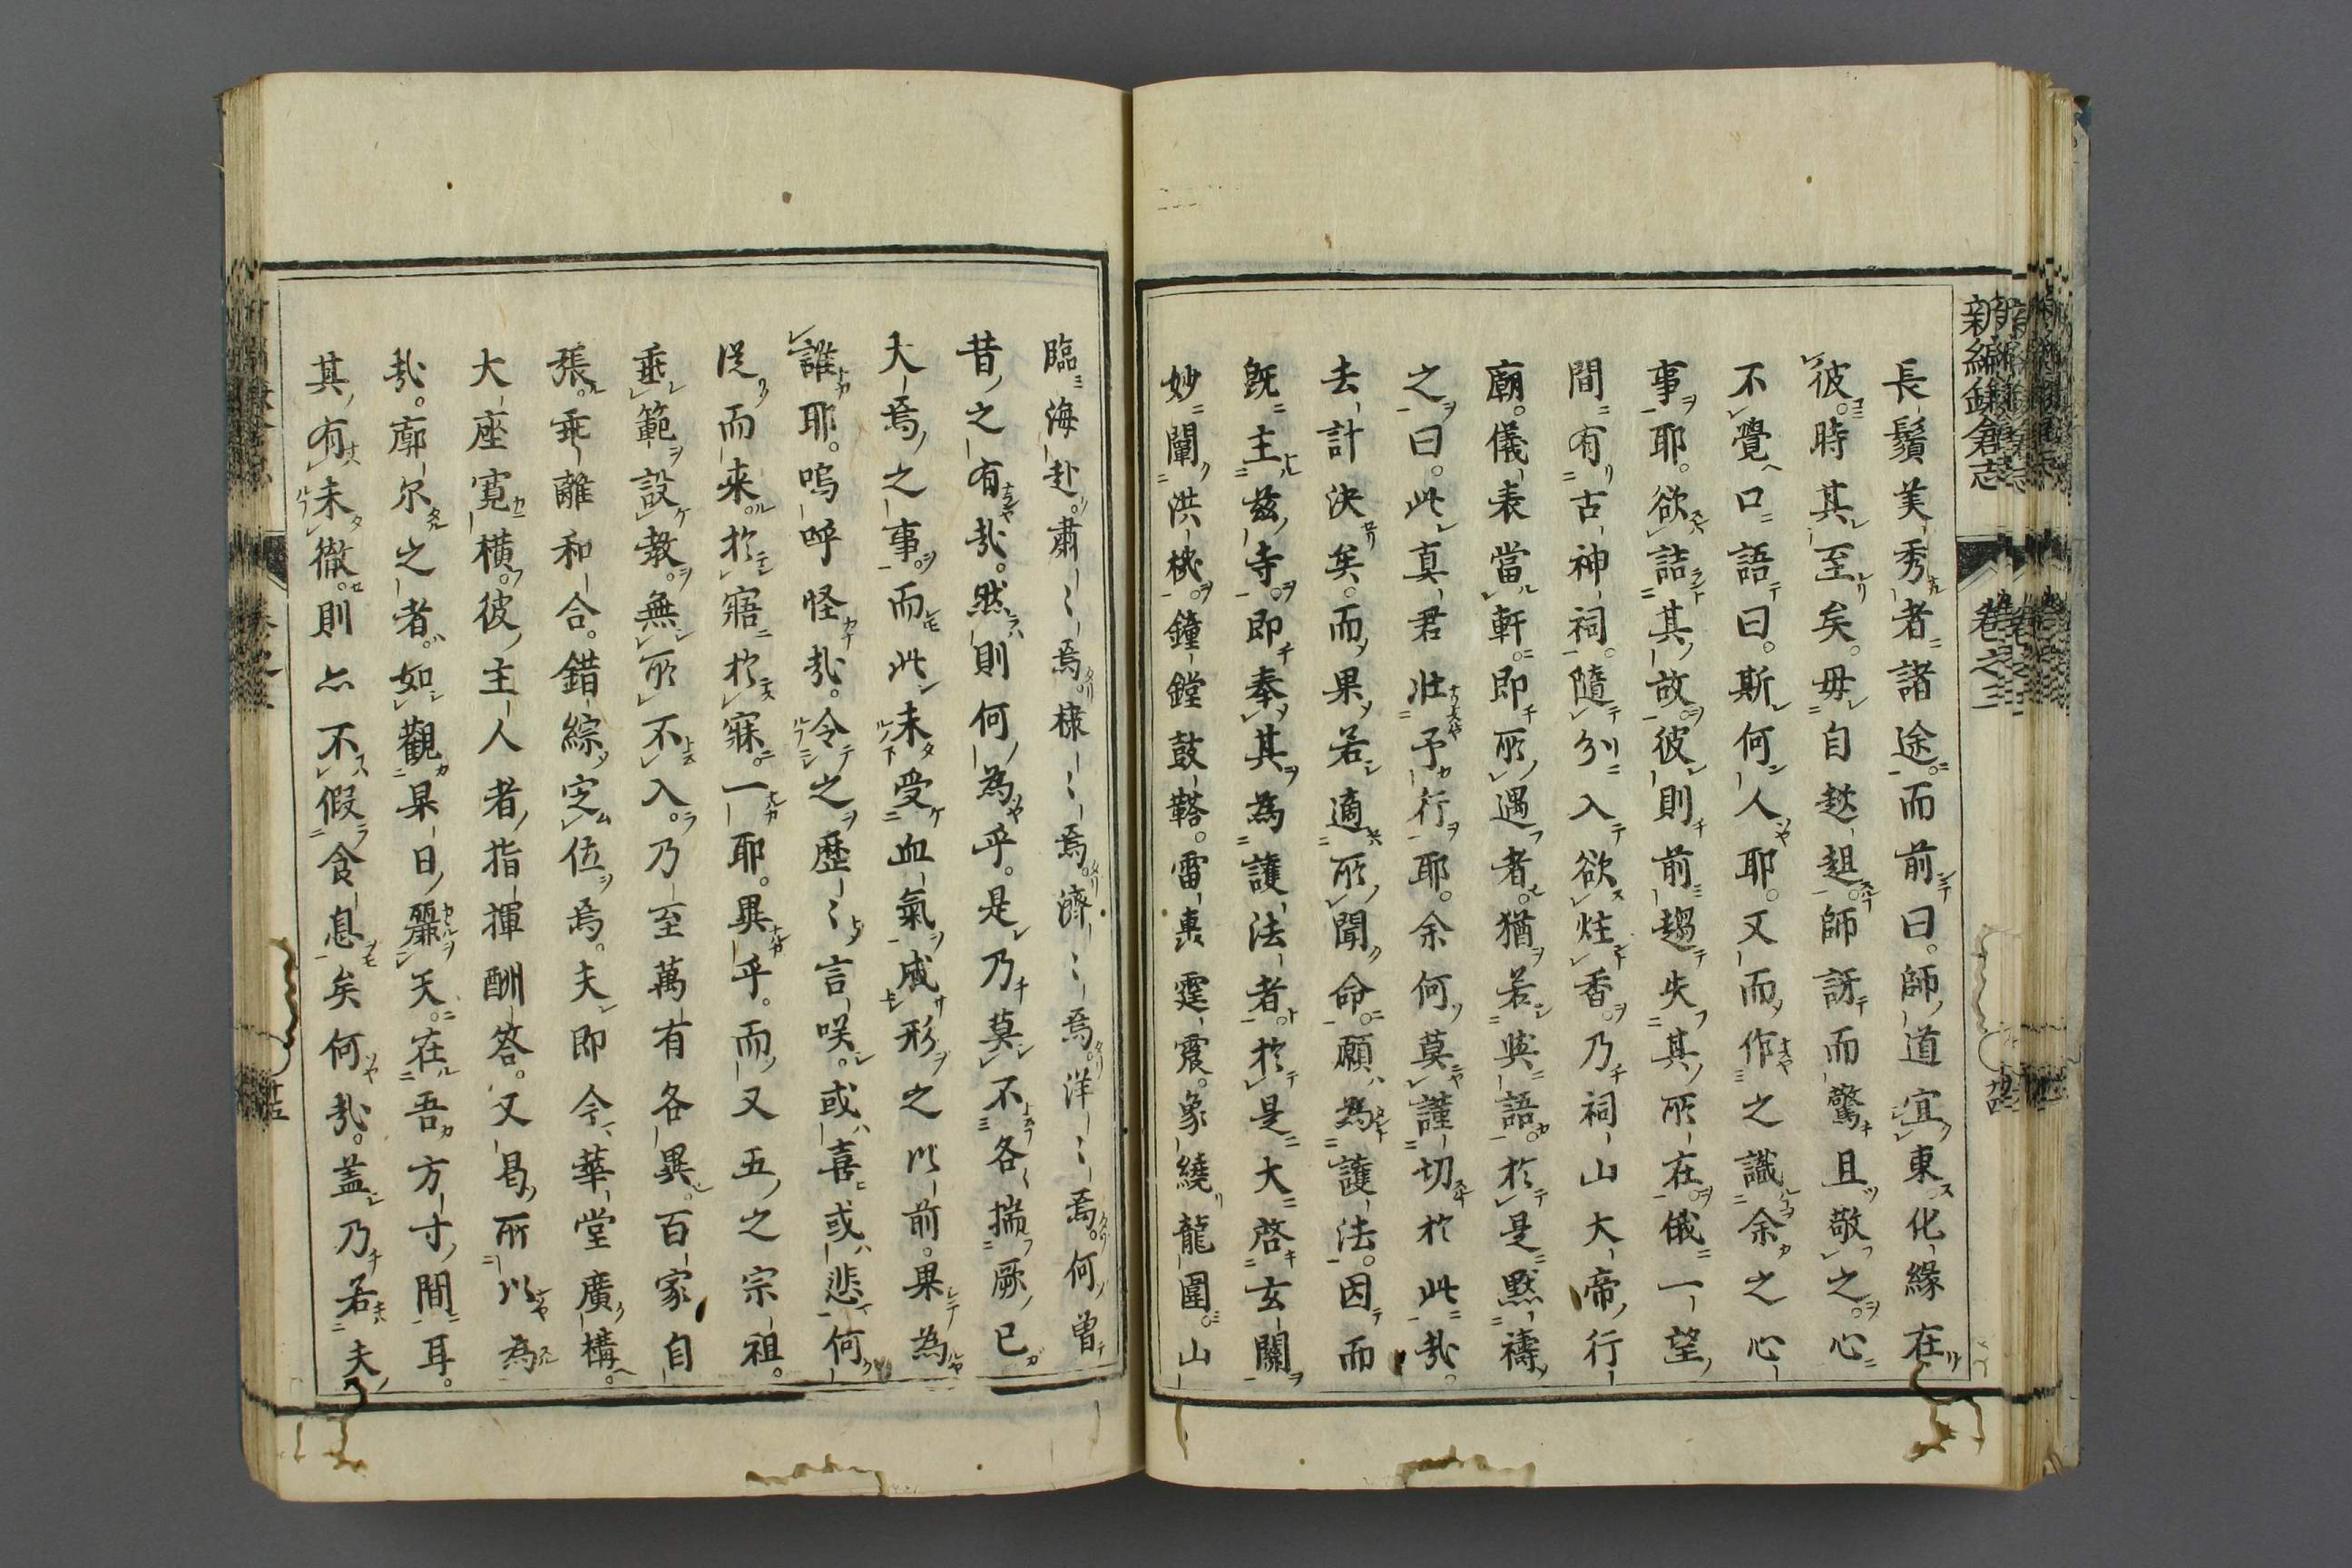 新編鎌倉志 卷之三 十四
長鬚美秀者諸途。而前曰。師道宜東。化緣在
彼。時其至矣。毋自趑趄。師訝而驚且敬之。心
不覺口語曰。斯何人耶。又而作之識余之心
事耶。欲詰其故。彼則前趨失其所在。俄一望
間有古神祠。隨列入欲炷香。乃祠山大帝行
廟。儀表當軒。即所遇者。猶若與語。於是默禱
之曰。此真君壯予行耶。余何莫謹切於此哉。
去計決矣。而果若適所聞命。願為護法。因而
既主茲寺。即奉其為護法者。於是大啓玄關
妙闡洪機。鐘鏜鼓鞳。雷轟霆震。象繞龍圍。山
臨海赴。肅〻焉。棣〻焉。濟〻焉。洋〻焉。何曾
昔之有哉。然則何為乎。是乃莫不各揣厥已
夫焉之事。而此未受血氣成形之以前。果為
誰耶。嗚呼怪哉。令之歷〻言咲。或喜或悲何
從而来。於寤於寐。一耶。異乎。而又五之宗祖。
垂範設教。無所不入。乃至萬有各異。百家自
張。乖離和合。錯綜定位焉。夫即今華堂廣構。
大座寬橫。彼主人者指揮酬答。又曷所以為
哉。廓尔之者。如觀杲日麗天。在吾方寸間耳。
其有未徹。則亦不假食息矣何哉。盖乃若夫